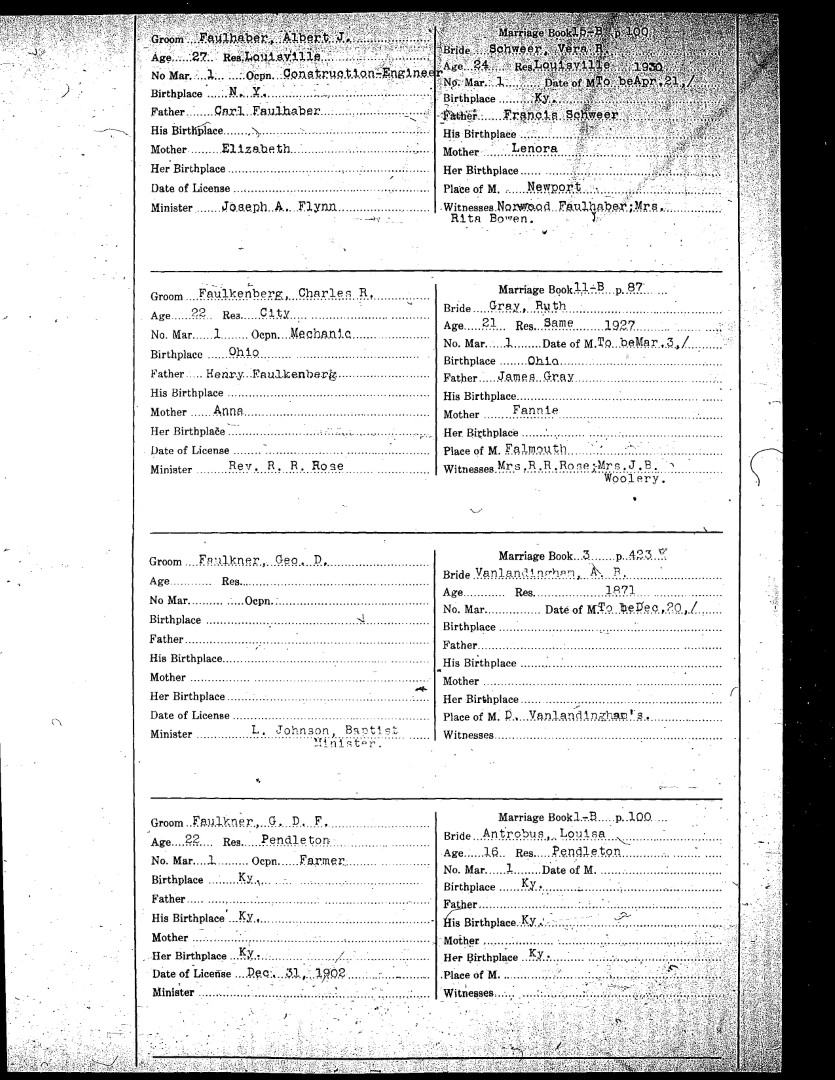 Groom Faulhaber, Albert J.
Age 27 Res. Louisville
No Mar. 1 Ocpn. Construction-Engineer
Birthplace N. Y.
Father Carl Faulhaber
His Birthplace
Mother Elizabeth
Her Birthplace
Date of License
Minister Joseph A. Flynn
Marriage Book 15-B p. 100
Bride Schweer, Vera R.
Age 24 Res. Louisville 1930
No. Mar. 1 Date of M. To be Apr. 21, /
Birthplace Ky.
Father Francis Schweer
His Birthplace
Mother Lenora
Her Birthplace
Place of M. Newport
Witnesses Norwood Faulhaber; Mrs.
Rita Bowen.
Groom Faulkenberg, Charles R.
Age 22 Res. City
No. Mar. 1 Ocpn. Mechanic
Birthplace Ohio
Father Henry Faulkenberg
His Birthplace
Mother Anna
Her Birthplace
Date of License
Minister Rev. R. R. Rose
Marriage Book 11-B p. 87
Bride Gray, Ruth
Age 21 Res. Same 1927
No. Mar. 1 Date of M. To be Mar. 3, /
Birthplace Ohio
Father James Gray
His Birthplace
Mother Fannie
Her Birthplace
Place of M. Falmouth
Witnesses Mrs. R. R. Rose; Mrs. J. B.
Woolery.
Groom Faulkner, Geo. D.
Age Res.
No Mar. Ocpn.
Birthplace
Father
His Birthplace
Mother
Her Birthplace
Date of License
Minister L. Johnson, Baptist
Minister.
Marriage Book 3 p. 423
Bride Vanlandingham, A. B.
Age Res. 1871
No. Mar. Date of M. To be Dec. 20, /
Birthplace
Father
His Birthplace
Mother
Her Birthplace
Place of M. D. Vanlandingham's.
Witnesses
Groom Faulkner, G. D. F.
Age 22 Res. Pendleton
No. Mar. 1 Ocpn. Farmer
Birthplace Ky.
Father
His Birthplace Ky.
Mother
Her Birthplace Ky.
Date of License Dec. 31, 1902
Minister
Marriage Book 1-B p. 100
Bride Antrobus, Louisa
Age 16 Res. Pendleton
No. Mar. 1 Date of M.
Birthplace Ky.
Father
His Birthplace Ky.
Mother
Her Birthplace Ky.
Place of M.
Witnesses